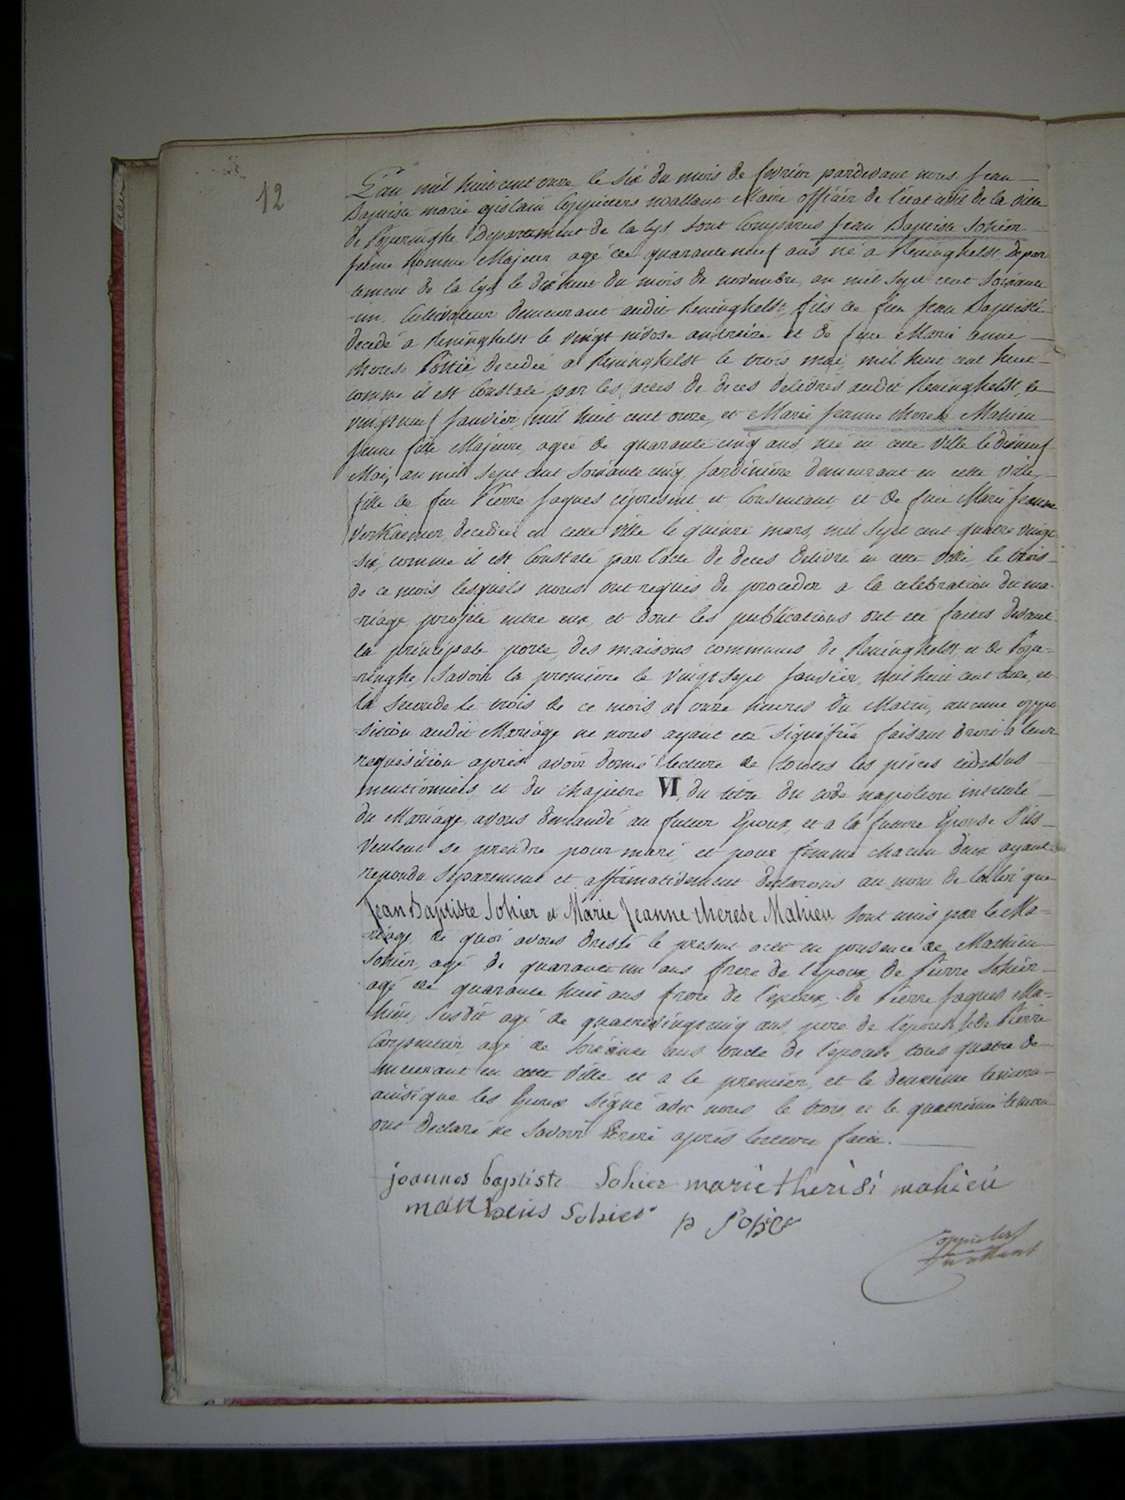 12
L'an mil huit cent onze le six du mois de fevrier pardevant nous Jean
Baptiste marie Gislain Coppieters wallant Maire officier de l'état civil de la ville
de Poperinghe Departement de la Lys sont Comparus Jean Baptiste Sohier
jeune homme Majeur agé de quaranteneuf ans né a Reninghelst depar
tement de la Lys le dixhuit du mois de novembre an mil sept cent soixante
un Cultivateur demeurant audit Reninghelst fils de feu Jean Baptiste
decedé a Reninghelst le vingt nivose an treize et de feue Marie anne
therese decedée a Reninghelst le trois mai mil huit cent huit
comme il est Constaté par les actes de deces delivrés audit Reninghelst le
vingtneuf Janvier mil huit cent onze, et Marie Jeanne therese Mahieu
jeune fille Majeure, agée de quarante cinq ans née en cette ville le dixneuf
Mai, an mil sept cent soixante cinq Jardinière demeurant en cette ville
fille de feu Pierre Jaques ci present et Consentant et de feue Marie Jeanne
decedée en cette ville le quinze mars, mil sept cent quatre vingt
six, comme il est Constaté par l'acte de deces delivré en cette ville, le trois
de ce mois lesquels nous ont requis de proceder a la celebration du ma-
riage projeté entre eux, et dont les publications ont été faites devant
la principale porte des maisons communes de Reninghelst et de Pope-
ringhe, Savoir la première le vingtsept Janvier, mil huit cent onze, et
la seconde le trois de ce mois a onze heures du Matin, aucune oppo
sition audit Mariage ne nous ayant eté signifiée faisant droit a leur
requisition après avoir donné lecture de toutes les pièces cidessus
mentionnées et du chapitre VI, du titre du code napoleon intitulé
du Mariage, avons demandé au futur Epoux, et a la future Epouse s'ils
veulent se prendre pour mari, et pour femme chacun d'eux ayant
repondu séparement et affirmativement declarons au nom de la loi que
Jean Baptiste Sohier et Marie Jeanne therese Mahieu sont unis par le Ma-
riage de quoi avons dressé le present acte en presence de Mathieu
Sohier, agé de quarante un ans frere de l'epoux, de Pierre Sohier
agé de quarante huit ans frere de l'epoux, de Pierre Jaques Ma-
hieu, susdit agé de quatrevingtcinq ans, pere de l'épouse de Pierre
Carpentier agé de soixante ans oncle de l'epouse, tous quatre de-
meurant en cette ville et a le premier, et le deuxieme temoins
ainsi que les Epoux signé avec nous le trois, et le quatrième temoins
ont declaré ne savoir Ecrire après lecture faite.
joannes baptiste Sohier marie therisi mahieu
mathaeus Sohier p Sohier
Coppieters
Wallant